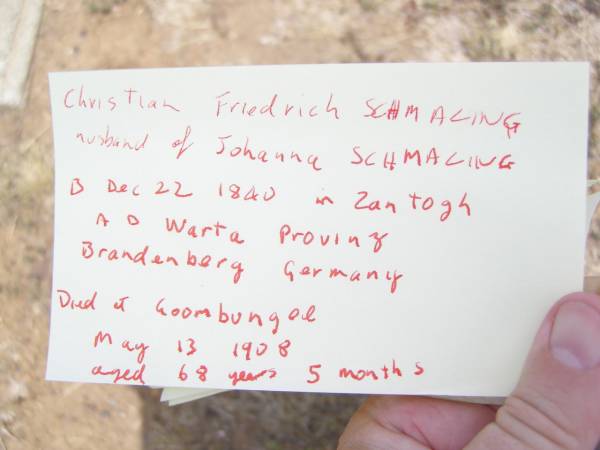 Christian Friedrich SCHMALING
husband of Johanna SCHMALING
B Dec 22 1840 in Zantogh
A D Warta Provinz
Brandenberg Germany
Died at Goombungee
May 13 1908
aged 68 years 5 months